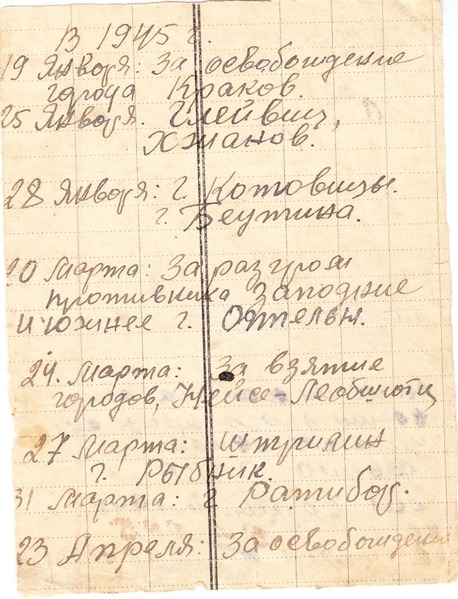 В 1945 г.
19 Января: За освобождение
города Краков.
25 Января. Глейвиц,
Хжанов.
28 Января: г. Котовицы.
г. Беутина.
20 Марта: За разгром
противника Западнее
и южнее г. Оппельн.
24. Марта: За взятие
городов, Нейсе-Леобшютц
27 Марта: Штрилин
г. Рыбник.
31 Марта: г. Ратибор.
23 Апреля: За освобождение